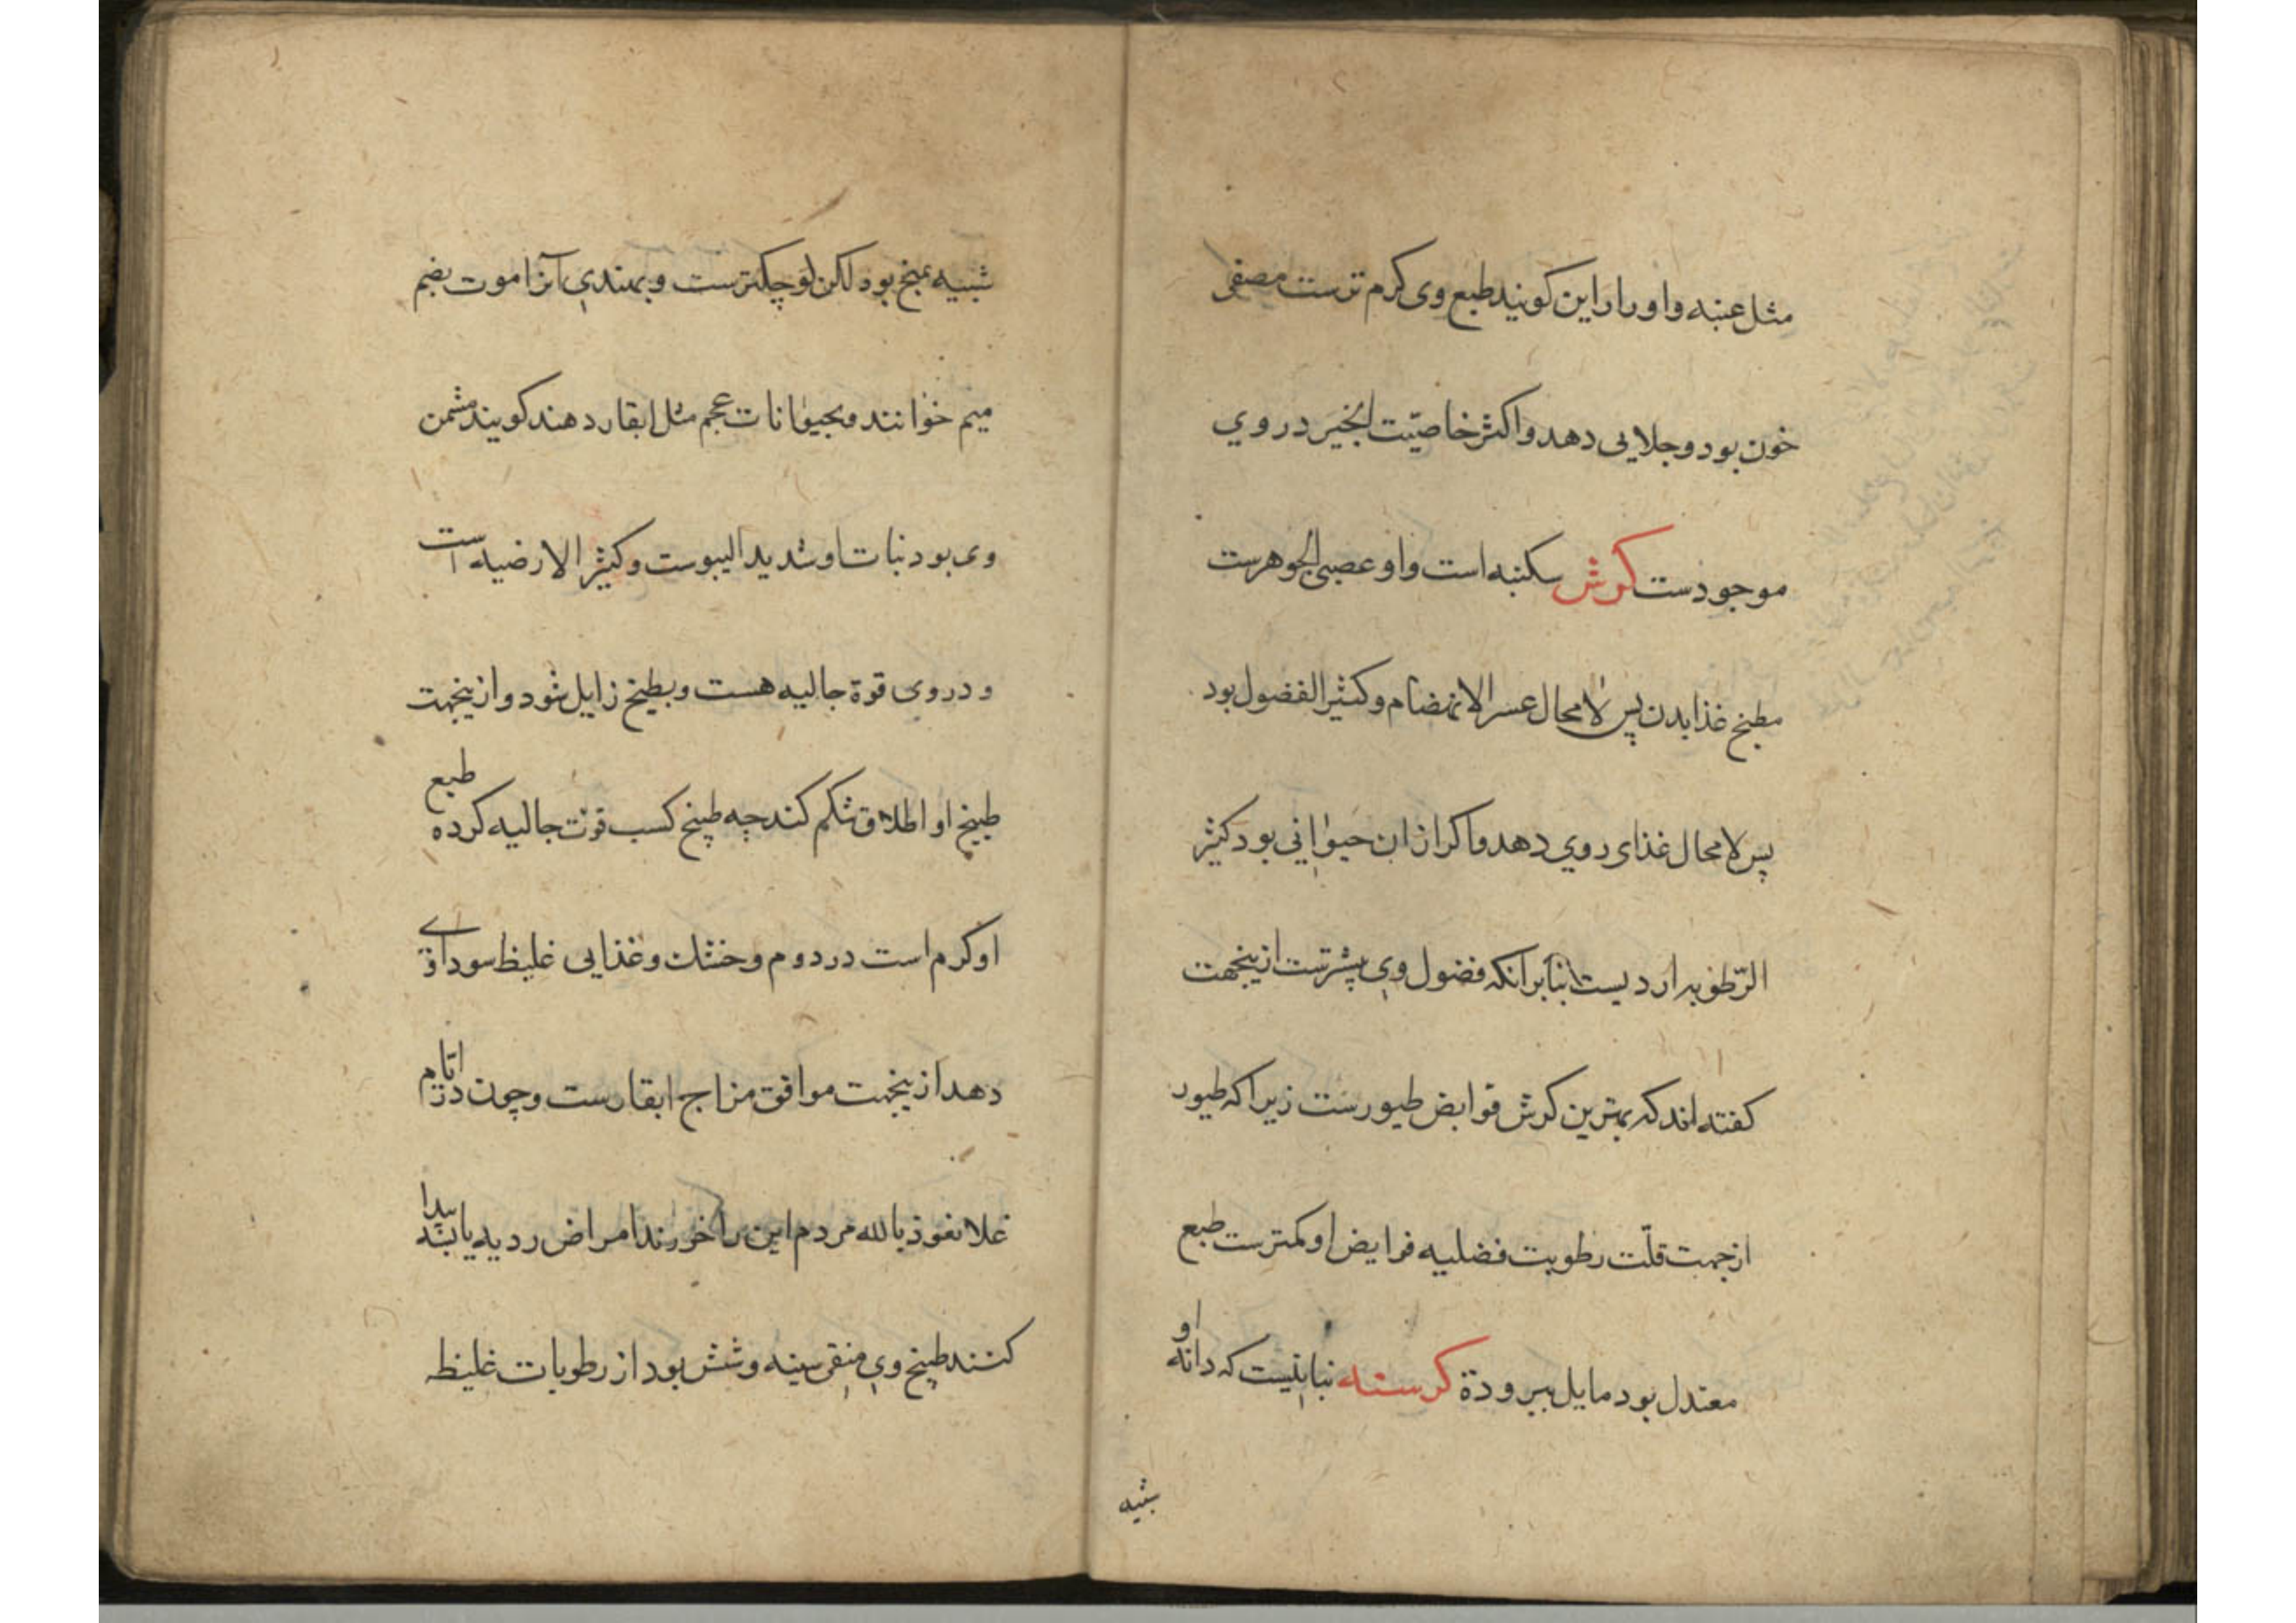 مثل عنبه و اورا راین کویند طبع وی کرم ترست مصفی
خون بود و جلایی دهد و اکثر خاصیّت انجیر در وي
موجودست کرش سکنبه است و او عصبی الجوهرست
مطبخ غذا بدن پس لامحال عسر الانهضام و کثیر الفضول بود
پس لامحال غذای ردي دهد و اکر از ان حیواني بود کثیر
الرّطوبه اردیست بنابر انکه فضول وي بیشترست ازینجهت
کفته اند که بهترین کرش قوابض طیورست زیرا که طیور
از جهت قلّت رطوبت فضلیه فرایض او کمترست طبع
معتدل بود مایل ببرودة کرسنه نباتیست که دانه او
شبیه
شبیه بمنج بود لکن کوچکترست و بهندي آنرا موت بضم
میم خوانند و بحیوانات عجم مثل ابقار دهند کویند مثمن
وی بود نبات او شدید الیبوست و کثیر الارضیه است
و در وی قوة جالیه هست و بطبخ زایل شود و ازینجهت
طبیخ او اطلاق شکم کند چه طبیخ کسب قوت جالیه کرده طبع
او کرم است در دوم و خشك و غذایی غلیظ سوداوی
دهد ازینجهت موافق مزاج ابقارست و چون در ایام
غلا نعوذ بالله مردم این را خورند امراض ردیه یابند پیدا
کنند طبیخ وي منقي سینه و شش بود از رطوبات غلیظه